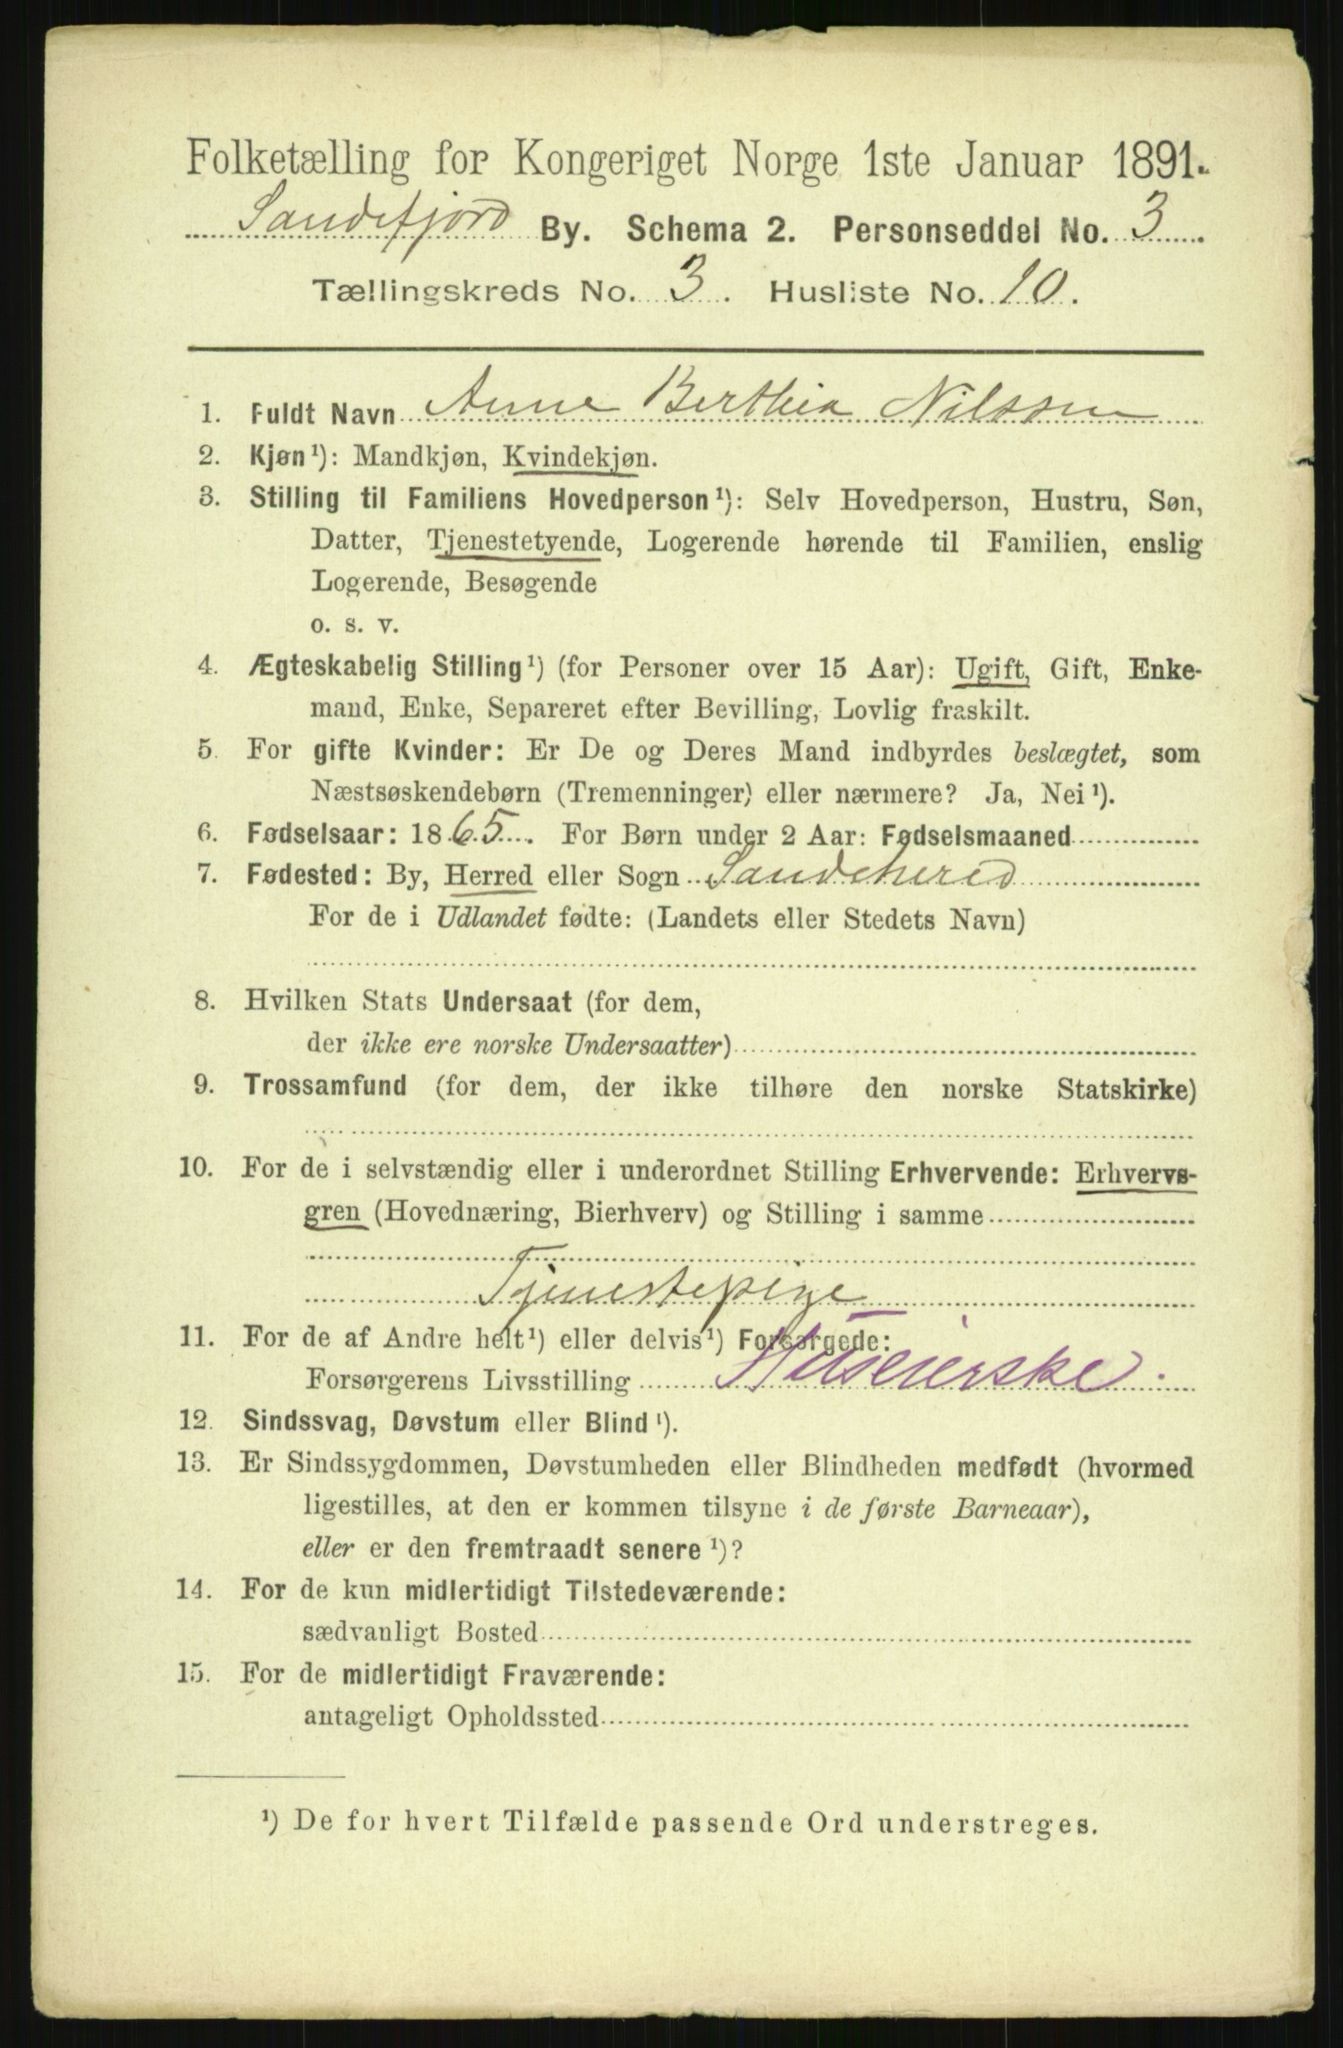 Folketælling for Kongeriget Norge 1ste Januar 1891.
Sandefjord By. Schema 2. Personseddel No. 3.
Tællingskreds No. 3. Husliste No. 10.
1. Fuldt Navn Anne Berthea Nilssen
2. Kjøn¹): Mandkjøn, Kvindekjøn.
3. Stilling til Familiens Hovedperson¹): Selv Hovedperson, Hustru, Søn,
Datter, Tjenestetyende, Logerende hørende til Familien, enslig
Logerende, Besøgende
o. s. v.
4. Ægteskabelig Stilling¹) (for Personer over 15 Aar): Ugift, Gift, Enke-
mand, Enke, Separeret efter Bevilling, Lovlig fraskilt.
5. For gifte Kvinder: Er De og Deres Mand indbyrdes beslægtet, som
Næstsøskendebørn (Tremenninger) eller nærmere? Ja, Nei¹).
6. Fødselsaar: 1865. For Børn under 2 Aar: Fødselsmaaned
7. Fødested: By, Herred eller Sogn Sandehered
For de i Udlandet fødte: (Landets eller Stedets Navn)
8. Hvilken Stats Undersaat (for dem,
der ikke ere norske Undersaatter)
9. Trossamfund (for dem, der ikke tilhøre den norske Statskirke)
10. For de i selvstændig eller i underordnet Stilling Erhvervende: Erhvervs-
gren (Hovednæring, Bierhverv) og Stilling i samme
Tjenestepige
11. For de af Andre helt¹) eller delvis¹) Forsørgede:
Forsørgerens Livsstilling Huseierske.
12. Sindssvag, Døvstum eller Blind¹).
13. Er Sindssygdommen, Døvstumheden eller Blindheden medfødt (hvormed
ligestilles, at den er kommen tilsyne i de første Barneaar),
eller er den fremtraadt senere¹)?
14. For de kun midlertidigt Tilstedeværende:
sædvanligt Bosted
15. For de midlertidigt Fraværende:
antageligt Opholdssted
¹) De for hvert Tilfælde passende Ord understreges.